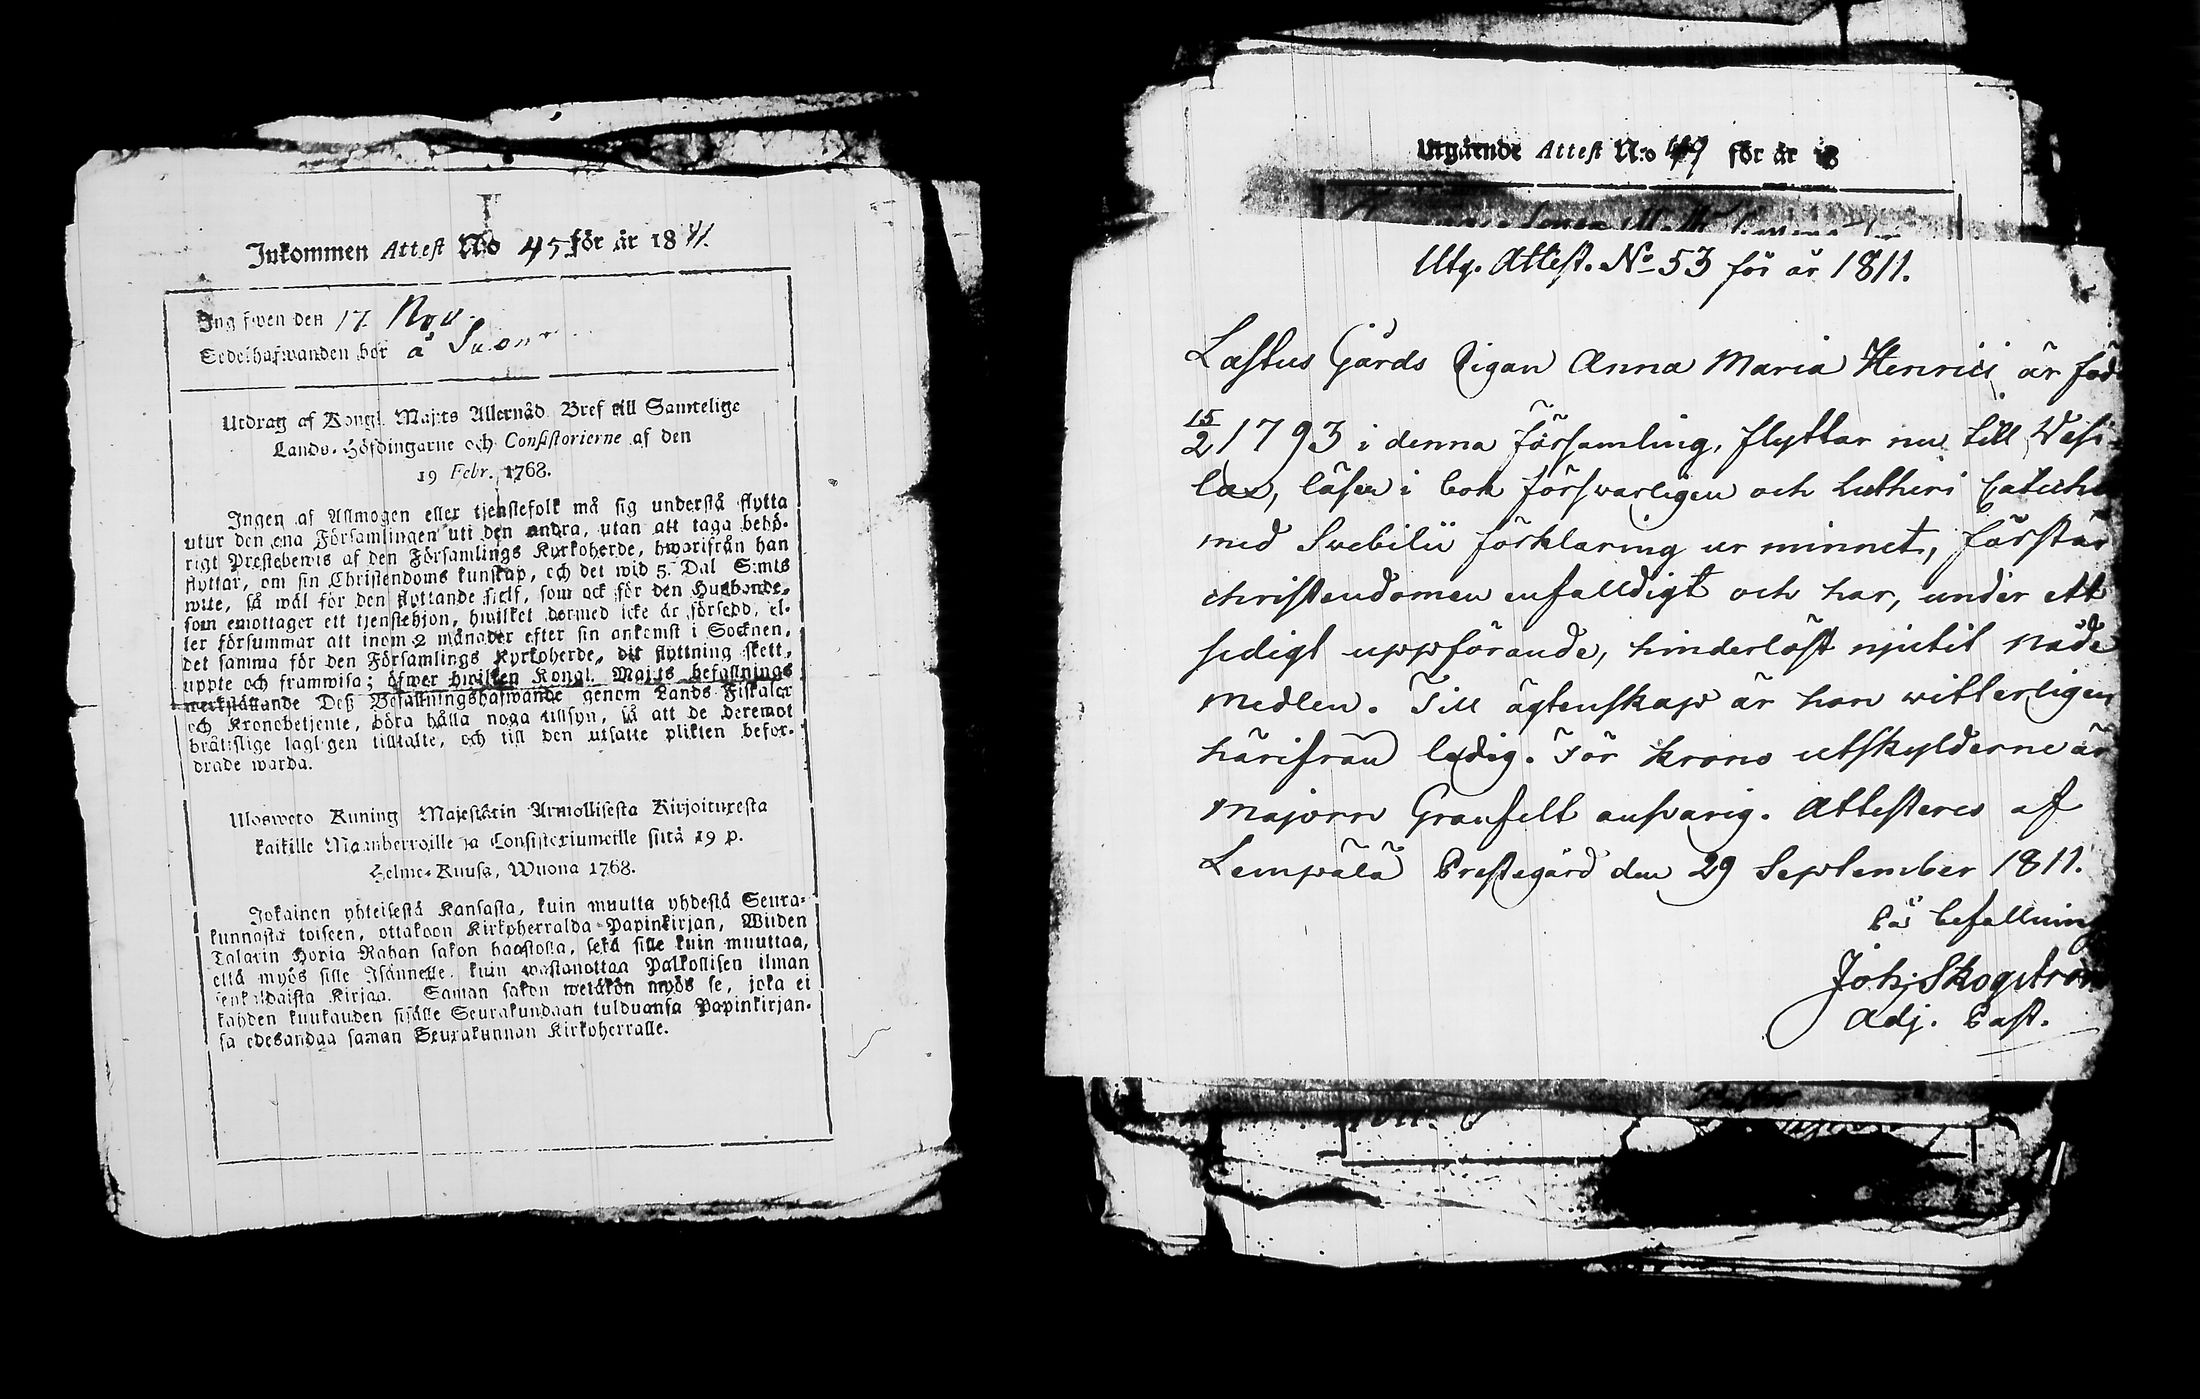 Inkommen Attest No 45 för år 1811.
Ing fwen den 17 Nov.
Sedelhafwanden bor å
Utdrag af Kongl. Maj:ts Allernåd. Bref till Samtelige
Lands-Höfdingarne och Consistorierne af den
19 Febr. 1768.
Ingen af Allmogen eller tjenstefolk må sig understå flytta
utur den ena Församlingen uti den andra, utan att taga behö-
rigt Prestebewis af den Församlings Kyrkoherde, hwarifrån han
flyttar, om sin Christendoms kunskap, och det wid 5. Dal. S:mts
wite, så wäl för den flyttande sielf, som ock för den Husbonde,
som emottager ett tjenstehjon, hwilket dermed icke är försedd, el-
ler försummar att inom 2 månader efter sin ankomst i Socknen,
det samma för den Församlings Kyrkoherde, dit flyttning skett,
uppte och framwisa; öfwer hwilken Kongl. Maj:ts befallnings
werkställande Deß Befallningshafwande genom Lands Fiskaler
och Kronobetjente, böra hålla noga tillsyn, så att de deremot
brättslige lagligen tilltalte, och till den utsatte plikten befor-
drade warda.
Uloswето Kuning Majestätin Armollisesta Kirjoituxesta
kaikille Maanherroille ja Consistoriumeille siitä 19 p.
Helme-Kuusa, Wuona 1768.
Jokainen yhteisestä Kansasta, kuin muutta yhdestä Seura-
kunnasta toiseen, ottakoon Kirkoherralda Papinkirjan, Wiiden
Talarin Hopia Rahan sakon haastolla, sekä sille kuin muuttaa,
että myös sille Isännelle, kuin wastanottaa Palkollisen ilman
senkaldaista Kirjaa. Saman sakon wetäkön myös se, joka ei
kahden kuukauden sisälle Seurakundaan tulduansa Papinkirjan-
sa edesandaa saman Seurakunnan Kirkoherralle.
Utgående Attest N:o 49 för år 18
Utg. Attest. No 53 för år 1811.
Lastus Gårds Pigan Anna Maria Henrici är föd
15/2 1793 i denna församling, flyttar nu till Wesi-
lax, läser i bok försvarligen och Lutheri Cateche
med Svebilii förklaring ur minnet, förstår
christendomen enfalldigt och har, under ett
sedigt uppförande, hinderlöst njutit nåde
medlen. Till ägtenskap är hon witterligen
härifrån ledig. För krono utskylderne är
Majorn Granfelt ansvarig. Attesteres af
Lempälä Prestegård den 29 September 1811.
På befallning
Joh. Skogström
Adj. Past.